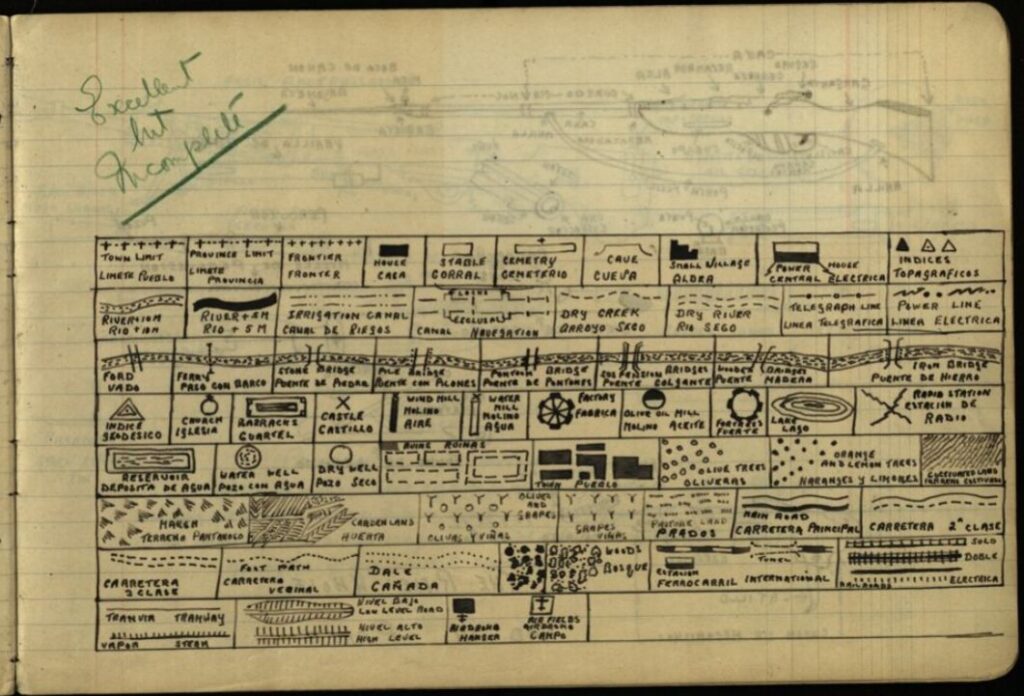 Excellent
but
Incomplete
TOWN LIMIT
LIMETE PUEBLO
PROVINCE LIMIT
LIMETE
PROVINCIA
FRONTIER
FRONTER
HOUSE
CASA
STABLE
CORRAL
CEMETRY
CEMETERIO
CAVE
CUEVA
SMALL VILLAGE
ALDEA
POWER HOUSE
CENTRAL ELECTRICA
INDICES
TOPAGRAFICOS
RIVER+10M
RIO +10M
RIVER+5M
RIO +5M
IRRIGATION CANAL
CANAL DE RIEGOS
LOCKS
ESCLUSAS
CANAL NAVEGATION
DRY CREEK
ARROYO SECO
DRY RIVER
RIO SECO
TELEGRAPH LINE
LINEA TELEGRAFICA
POWER LINE
LINEA ELECTRICA
FORD
VADO
FERRY
PASO CON BARCO
STONE BRIDGE
PUENTE DE PIEDRA
PILE BRIDGE
PUENTE CON PILONES
PONTOON BRIDGE
PUENTE DE PONTONES
SUSPENSION BRIDGES
PUENTE COLGANTE
WOODEN BRIDGES
PUENTE MADERA
IRON BRIDGE
PUENTE DE HIERRO
INDICE
GEODESICO
CHURCH
IGLESIA
BARRACKS
CUARTEL
CASTLE
CASTILLO
WIND MILL
MOLINO
AIRE
WATER
MILL
MOLINO
AGUA
FACTORY
FABRICA
OLIVE OIL MILL
MOLINO ACEITE
FORTRESS
FUERTE
LAKE
LAGO
RADIO STATION
ESTACION DE
RADIO
RESERVOIR
DEPOSITA DE AGUA
WATER WELL
POZO CON AGUA
DRY WELL
POZO SECO
RUINS RUINAS
TOWN PUEBLO
OLIVE TREES
OLIVERAS
ORANGE
AND LEMON TREES
NARANJES Y LIMONES
CULTIVATED LAND
MARSH
TERRENO PANTANOLO
GARDEN LAND
HUERTA
OLIVES
AND
GRAPES
OLIVAS Y VIÑAS
GRAPES
VIÑAS
PASTURE LAND
PRADOS
MAIN ROAD
CARRETERA PRINCIPAL
CARRETERA 2ª CLASE
CARRETERA
3 CLASE
FOOT PATH
CARRETERO
VECINAL
DALE
CAÑADA
WOODS
BOSQUE
TUNEL
ESTACION
FERROCARRIL INTERNATIONAL
SOLO
DOBLE
RAILROADS ELECTRICA
TRANVIA TRAMWAY
VAPOR STEAM
NIVEL BAJO
LOW LEVEL ROAD
NIVEL ALTO
HIGH LEVEL
HANGER
AIR FIELDS
CAMPO